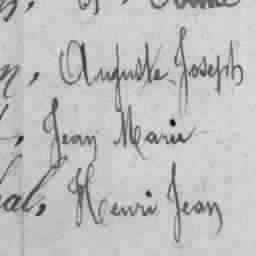 , Auguste Joseph
, Jean Marie
al, Henri Jean